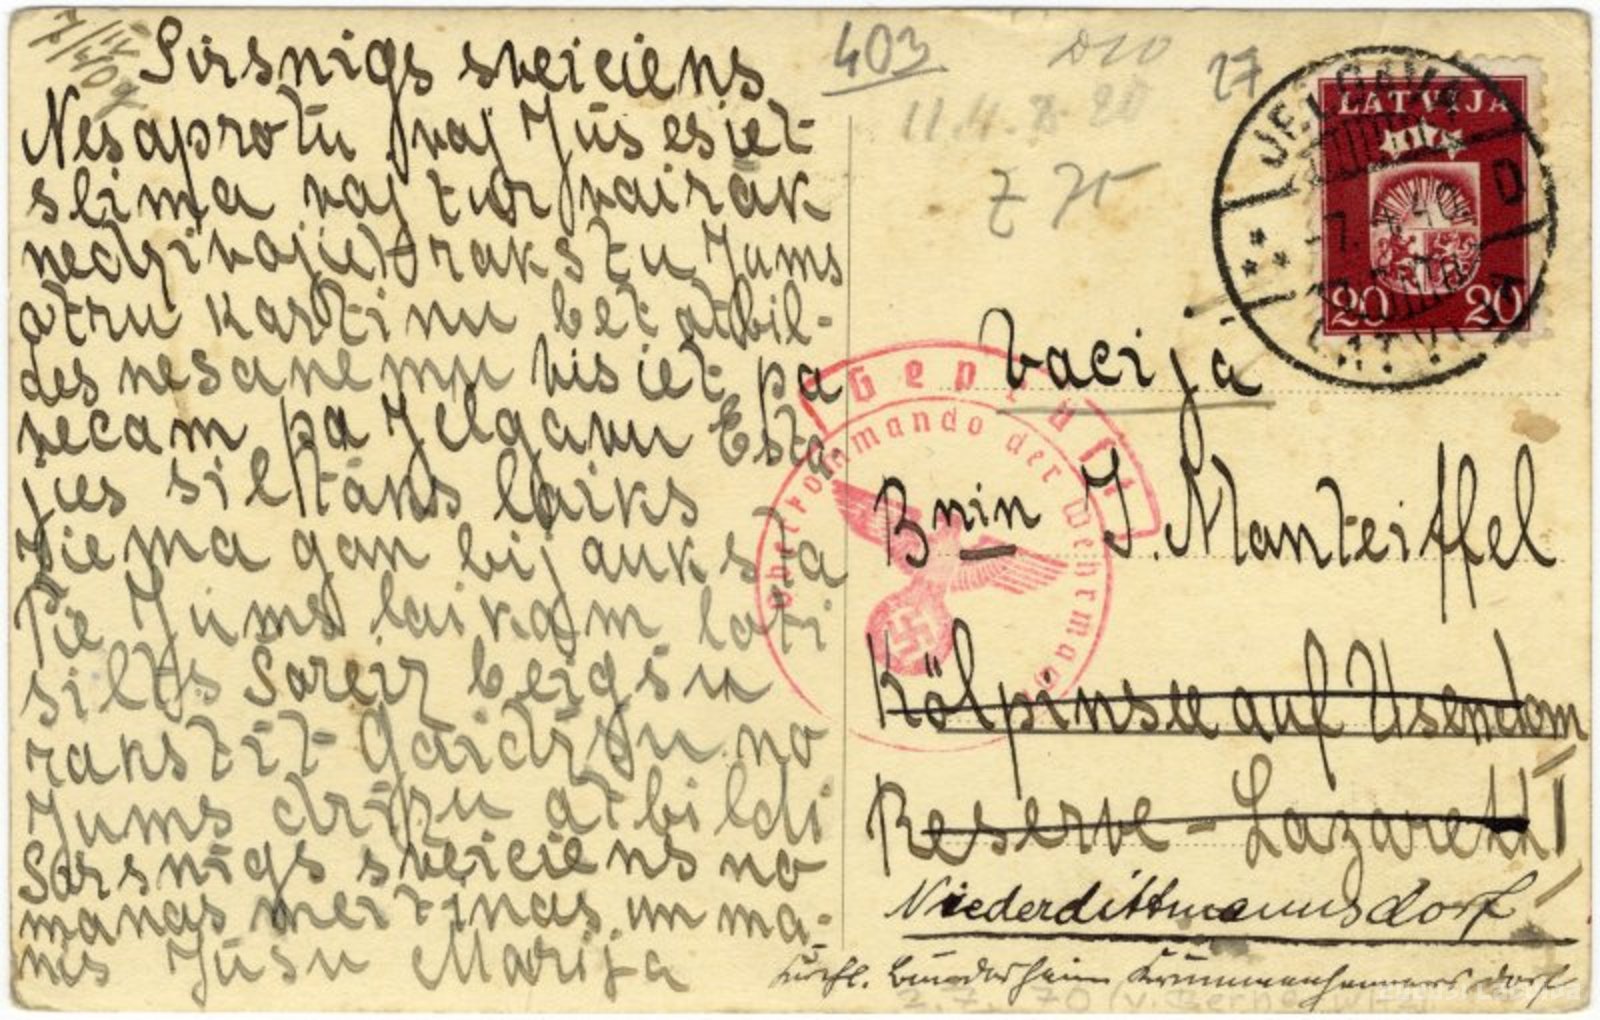 Sirsnigs sveiciens
Nesaprotu vaj Jūs esiet
slima vaj tur vairāk
nedzivojiet rakstu Jums
otru kartinu bet atbil-
des nesanemu bis iet pa
vecam pa Jelgavu Esta
jies siltāks laiks
Ziema gan bij auksta
Pie Jums laikam loti
silts Soreiz beigšu
rakstit Gaidišu no
Jums drizu atbildi
Sirsnigs sveiciens no
manas meitinas un ma-
nis Jūsu Marija
403
27
LATVIJA
20 20
JELGAVA
D
Geprüft
Oberkommando der Wehrmacht
Vācijā
Bnin J. Manteiffel
Kölpinsee auf Usendom
Reserve-Lazarett I
Niederdittmannsdorf